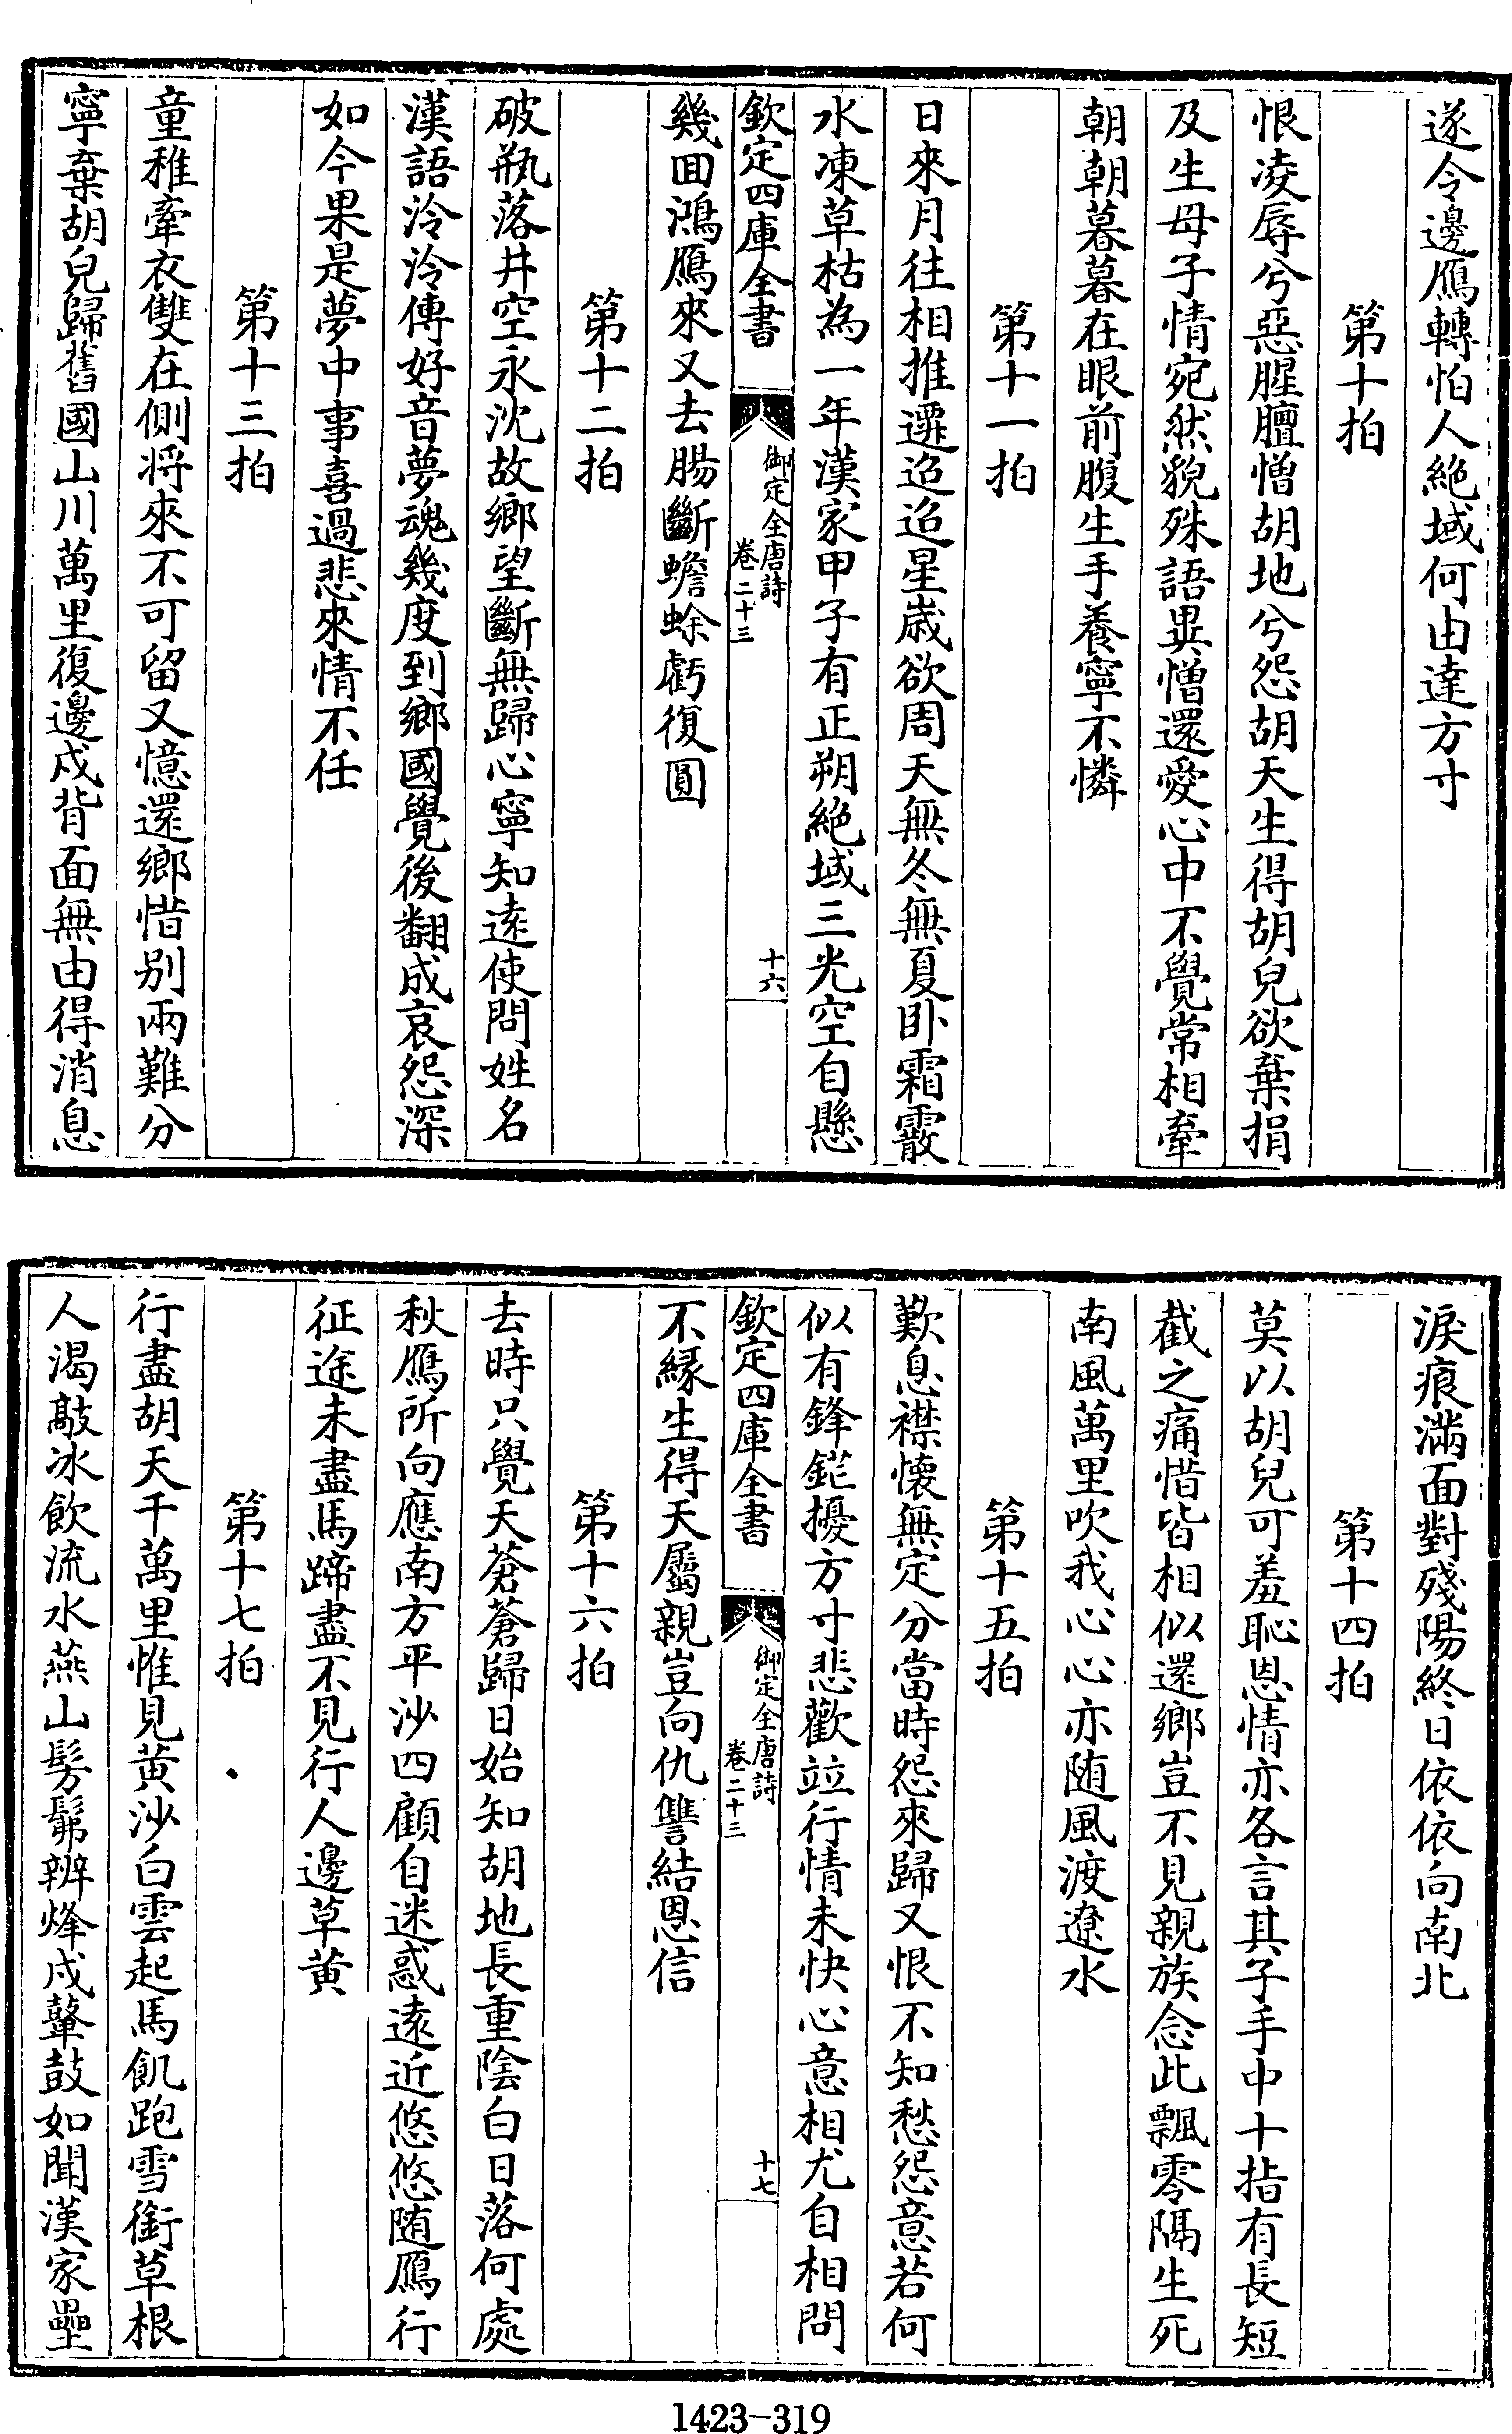 遂令邊鴈轉怕人絶域何由達方寸
第十拍
恨凌辱兮惡腥膻憎胡地兮怨胡天生得胡兒欲棄捐
及生母子情宛然貌殊語異憎還愛心中不覺常相牽
朝朝暮暮在眼前腹生手養寧不憐
第十一拍
日來月往相推遷迢迢星歲欲周天無冬無夏卧霜霰
水凍草枯為一年漢家甲子有正朔絶域三光空自懸
欽定四庫全書
御定全唐詩
卷二十三
十六
幾回鴻鴈來又去腸斷蟾蜍虧復圓
第十二拍
破瓶落井空永沈故鄉望斷無歸心寧知逺使問姓名
漢語泠泠傳好音夢魂幾度到鄉國覺後翻成哀怨深
如今果是夢中事喜過悲來情不任
第十三拍
童稚牽衣雙在側將來不可留又憶還鄉惜别兩難分
寧棄胡兒歸舊國山川萬里復邊戍背面無由得消息
淚痕滿面對殘陽終日依依向南北
第十四拍
莫以胡兒可羞恥恩情亦各言其子手中十指有長短
截之痛惜皆相似還鄉豈不見親族念此飄零隔生死
南風萬里吹我心心亦随風渡遼水
第十五拍
歎息襟懷無定分當時怨來歸又恨不知愁怨意若何
似有鋒鋩擾方寸悲歡竝行情未快心意相尤自相問
欽定四庫全書
御定全唐詩
卷二十三
十七
不縁生得天屬親豈向仇讐結恩信
第十六拍
去時只覺天蒼蒼歸日始知胡地長重陰白日落何處
秋鴈所向應南方平沙四顧自迷惑逺近悠悠随鴈行
征途未盡馬蹄盡不見行人邊草黄
第十七拍
行盡胡天千萬里惟見黄沙白雲起馬飢跑雪銜草根
人渴敲冰飲流水燕山髣髴辨烽戍鼙鼓如聞漢家壘
1423-319